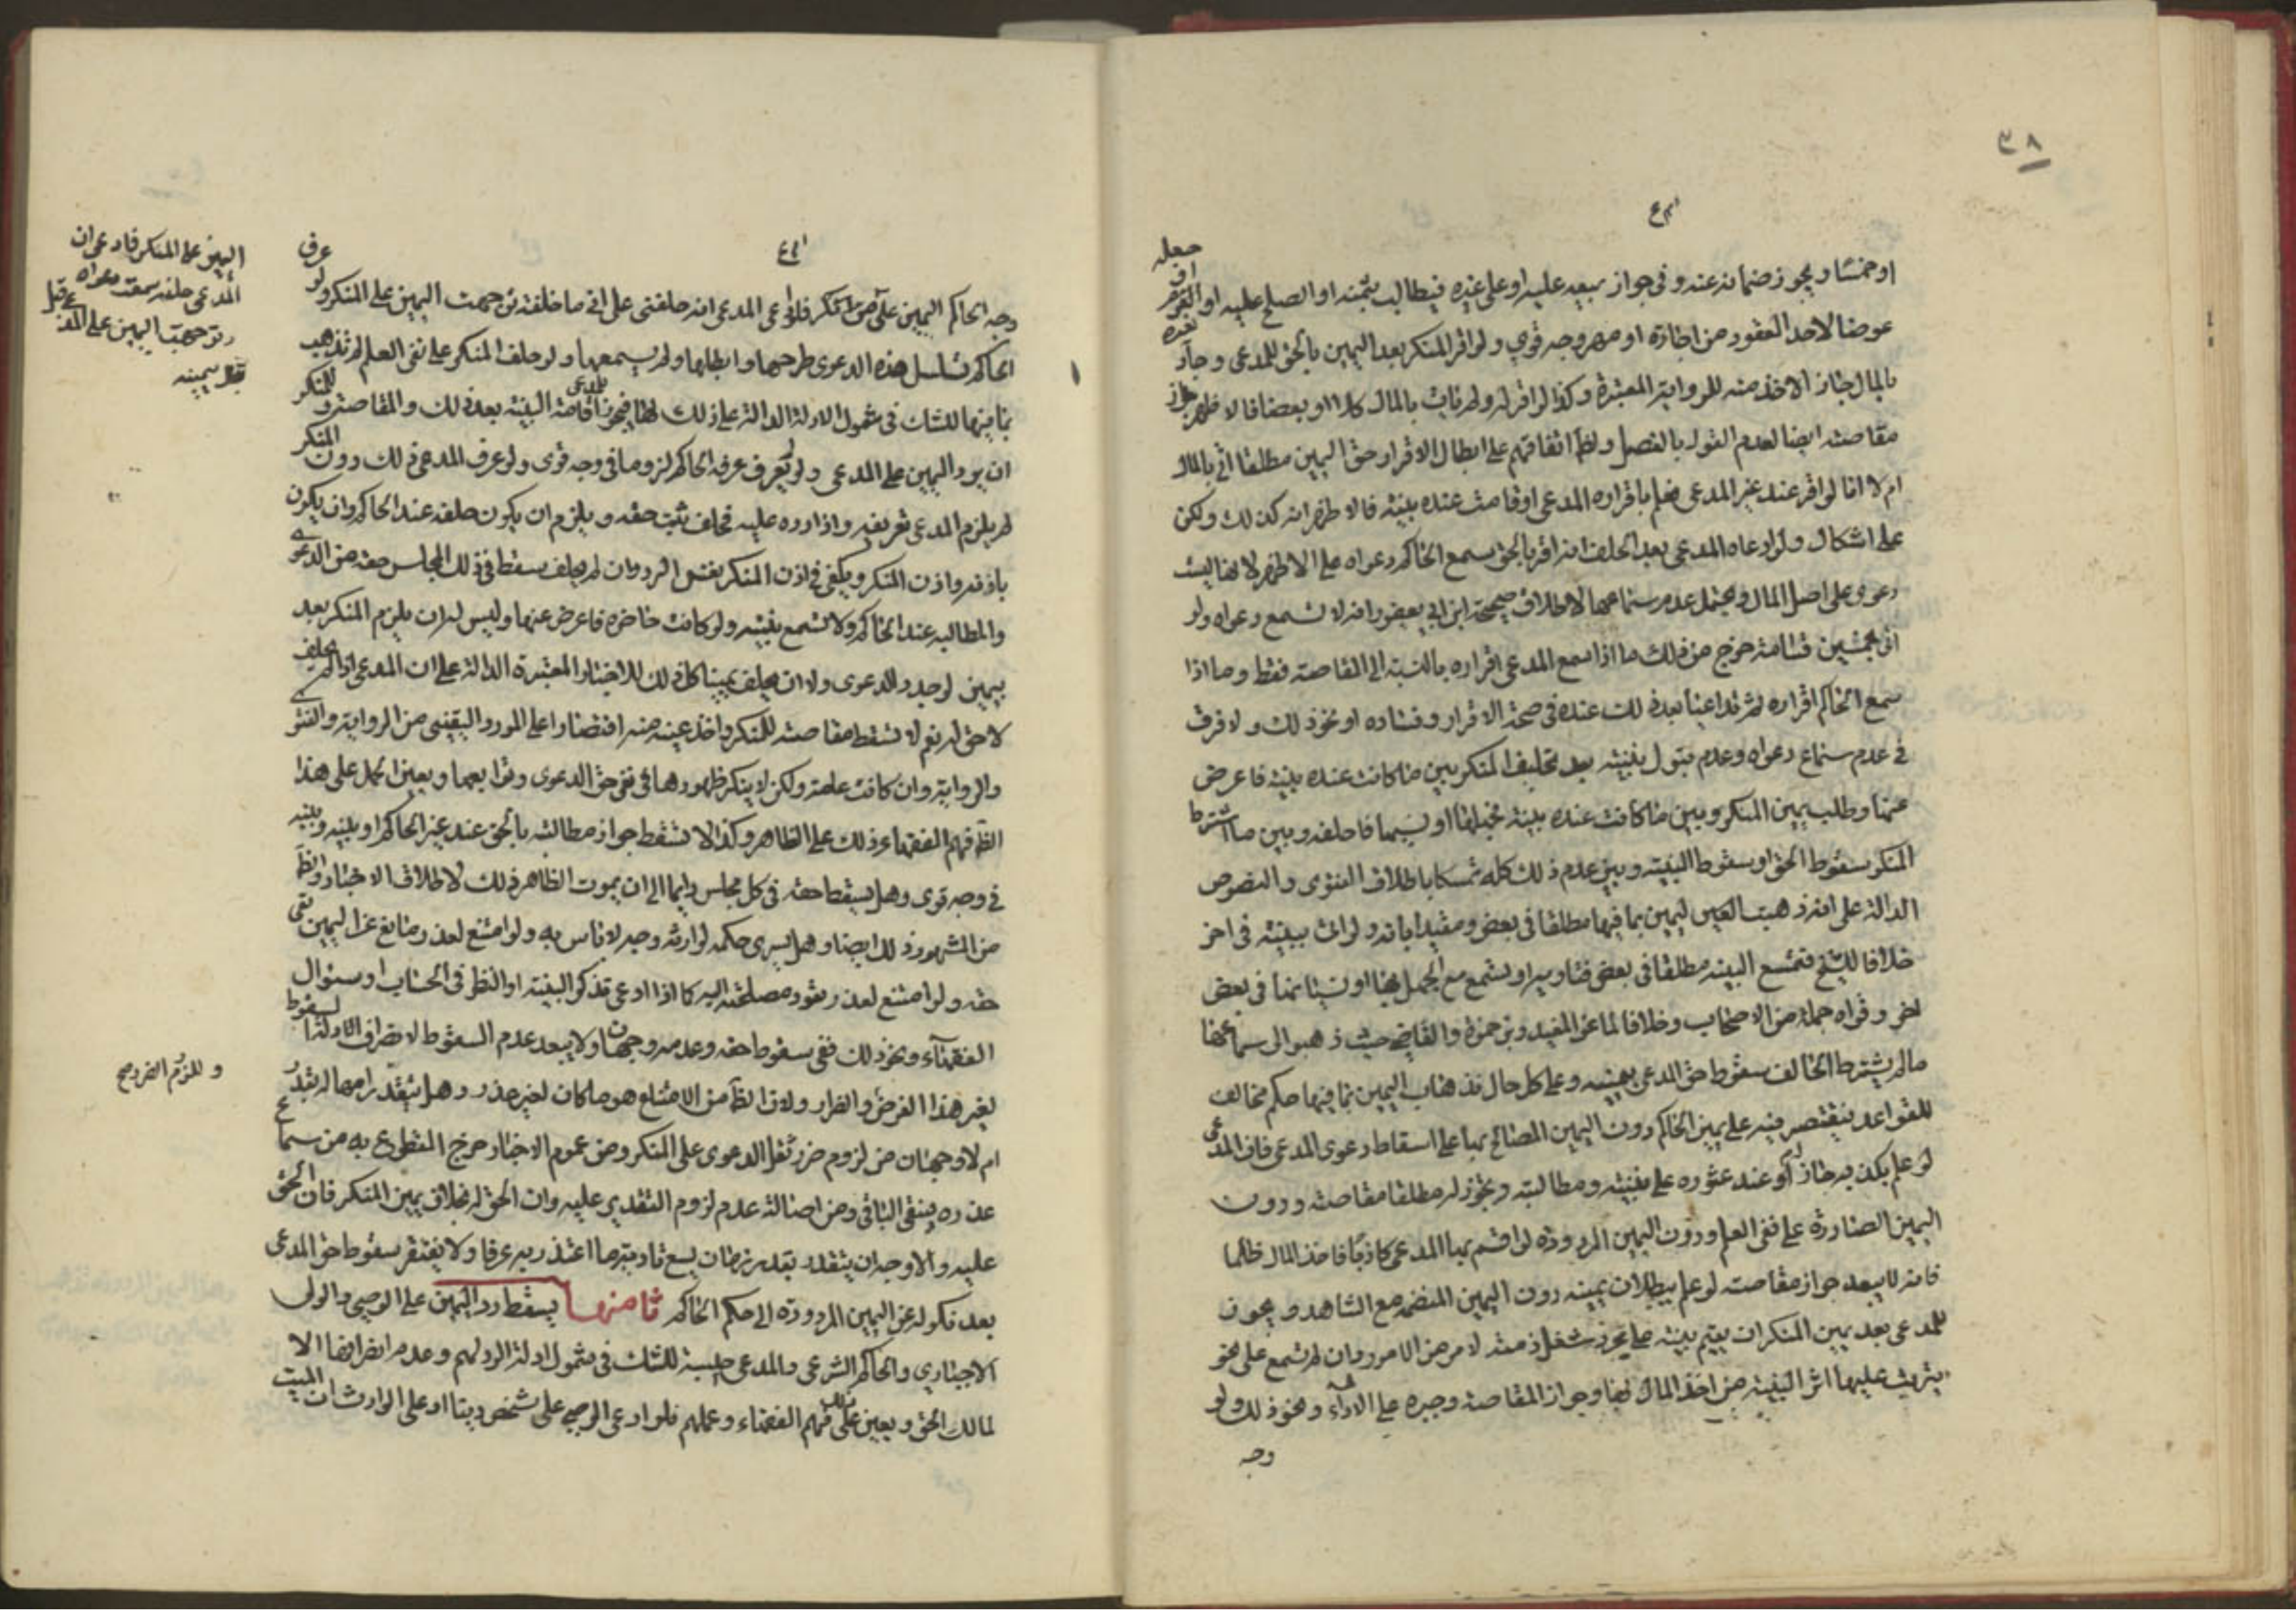 ٣٨
او خمسا ويجوز ضمانه عنه وفي جواز بيعه عليه او على غيره فيطالب بثمنه او الصلح عليه او
عوضا لاحد العقود من اجارة او مهر وجه قوي ولو اقر المنكر بعد اليمين بالحق للمدعي وجاء
بالمال جاز الاخذ منه للرواية المعتبرة وكذا لو اقر له ولم يات بالمال كلا او بعضا فالاظهر جواز
مقاصته ايضا لعدم القول بالفصل ولظ اتفاقهم على ابطال الاقرار حق اليمين مطلقا اتى بالمال
ام لا اما لو اقر عند غير المدعي فعلم باقراره المدعي او قامت عنده بينة فالاظهر انه كذلك ولكن
على اشكال ولو ادعاه المدعي بعد الحلف انه اقر بالحق سمع الحاكم دعواه على الاظهر لانها ليست
دعوى على اصل المال ويحتمل عدم سماعها لاطلاق صحيحة ابن ابي يعفور انه لا تسمع دعواه ولو
اتى بخمسين قسامة خرج من ذلك ما اذا سمع المدعي اقراره بالنسبة الى المقاصة فقط وما اذا
سمع الحاكم اقراره ثم تداعيا بعد ذلك عنده في صحة الاقرار وفساده او نحو ذلك ولا فرق
في عدم سماع دعواه وعدم قبول بينته بعد تحليف المنكر بين ما كانت عنده بينة فاعرض
عنها وطلب يمين المنكر وبين ما كانت عنده بينة فجهلها او نسيها فاحلفه وبين ما اشترط
المنكر سقوط الحق او سقوط البينة وبين عدم ذلك كله تمسكا باطلاق الفتوى والنصوص
الدالة على انه ذهبت اليمين بما فيها مطلقا في بعض ومقيدا بانه ولو اتى ببينة في اخر
خلافا للشيخ فتسمع البينة مطلقا في بعض فتاويه او تسمع مع الجهل بها او نسيانها في بعض
اخر وقواه جملة من الاصحاب وخلافا لما عن المفيد وبن حمزة والقاضي حيث ذهبوا الى سماعها
ما لم يشترط الحالف سقوط حق المدعي بيمينه وعلى كل حال فذهاب اليمين بما فيها حكم مخالف
للقواعد فيقتصر فيه على يمين الحاكم دون اليمين المصالح بها على اسقاط دعوى المدعي فان المدعي
لو علم بكذبه جاز له عند عثوره على بينة ومطالبته ويجوز له مطلقا مقاصته ودون
اليمين الصادرة على نفي العلم ودون اليمين المردودة لو اقسم بها المدعي كاذبا فاخذ المال ظلما
فانه لا يبعد جواز مقاصته لو علم ببطلان يمينه دون اليمين المنضمة مع الشاهد ويجوز
للمدعي بعد يمين المنكر ان يقيم بينة على مجرد شغل ذمته لامر من الامور وان لم تسمع على نحو
يترتب عليها اثر البينة من اخذ المال بها وجواز المقاصة وجبره على الاداء ونحو ذلك ولو
وجه
وجه الحاكم اليمين على المنكر فادعى المدعي انه حلفني على اني ما حلفته توجهت اليمين على المنكر ولو
الحاكم تسلسل هذه الدعوى طرحها وابطلها ولم يسمعها ولو حلف المنكر على نفي العلم لم تذهب
بما فيها للشك في شمول الادلة الدالة على ذلك لها فيجوز للمدعي اقامة البينة بعد ذلك والمقاصة وللمنكر
ان يرد اليمين على المدعي ولو لم يعرف عرفه الحاكم لزوما في وجه قوي ولو عرف المدعي ذلك دون المنكر
لم يلزم المدعي تعريفه واذا رده عليه فحلف ثبت حقه ويلزم ان يكون حلفه عند الحاكم وان يكون
باذنه واذن المنكر ويكفي في اذن المنكر نفس الرد وان لم يحلف سقط في ذلك المجلس حقه من الدعوى
والمطالبة عند الحاكم ولا تسمع بينته ولو كانت حاضرة فاعرض عنها وليس له ان يلزم المنكر بعد
بيمين لو جدد الدعوى ولا ان يحلف يمينا كل ذلك للاخبار المعتبرة الدالة على ان المدعي اذا لم يحلف
لا حق له نعم لا تسقط مقاصته للمنكر واخذ عينه منه اقتصارا على المورد اليقيني من الرواية والفتوى
والرواية وان كانت عامة ولكن لا ينكر ظهورها في نفي حق الدعوى وتوابعها ويعين الحمل على هذا
الظ فهم الفقهاء ذلك على الظاهر وكذا لا تسقط جواز مطالبته بالحق عند غير الحاكم او بينه وبينه
في وجه قوي وهل يسقط حقه في كل مجلس دائما الى ان يموت الظاهر ذلك لاطلاق الاخبار والظ
من المشهور ذلك ايضا وهل يسري حكمه لوارثه وجه لا باس به ولو امتنع لعذر مانع عن اليمين بقي
حقه ولو امتنع لعذر يعود مصلحته اليه كما اذا ادعى تذكر البينة او النظر في الحساب او سؤال
الفقهاء ونحو ذلك ففي سقوط حقه وعدمه وجهان ولا يبعد عدم السقوط لانصراف الادلة لسقوط
لغير هذا الفرض والضرار ولان الظ من الامتناع هو ما كان لغير عذر وهل يتقدر امهاله بقدر
ام لا وجهان من لزوم ضرر ثقل الدعوى على المنكر ومن عموم الاخبار خرج المقطوع به من سماع
عذره فيبقى الباقي ومن اصالة عدم لزوم التقدير عليه وان الحق له بخلاف يمين المنكر فان الحق
عليه والاوجه ان يتقدر بقدر زمان يسع تادية ما اعتذر به عرفا ولا يفتقر سقوط حق المدعي
بعد نكوله عن اليمين المردودة الى حكم الحاكم ثامنها يسقط رد اليمين على الوصي والولي
الاجباري والحاكم الشرعي والمدعي حسبة للشك في شمول ادلة الرد لهم وعدم انصرافها الا
لمالك الحق ويعين على ذلك فهم الفقهاء وعملهم فلو ادعى الوصي على شخص دينا او على الوارث ان الميت
عرف
اليمين على المنكر فادعى ان
المدعي حلفه سمعت دعواه
وتوجهت اليمين على المدعي
قبل يمينه
وللزوم الضرر مع